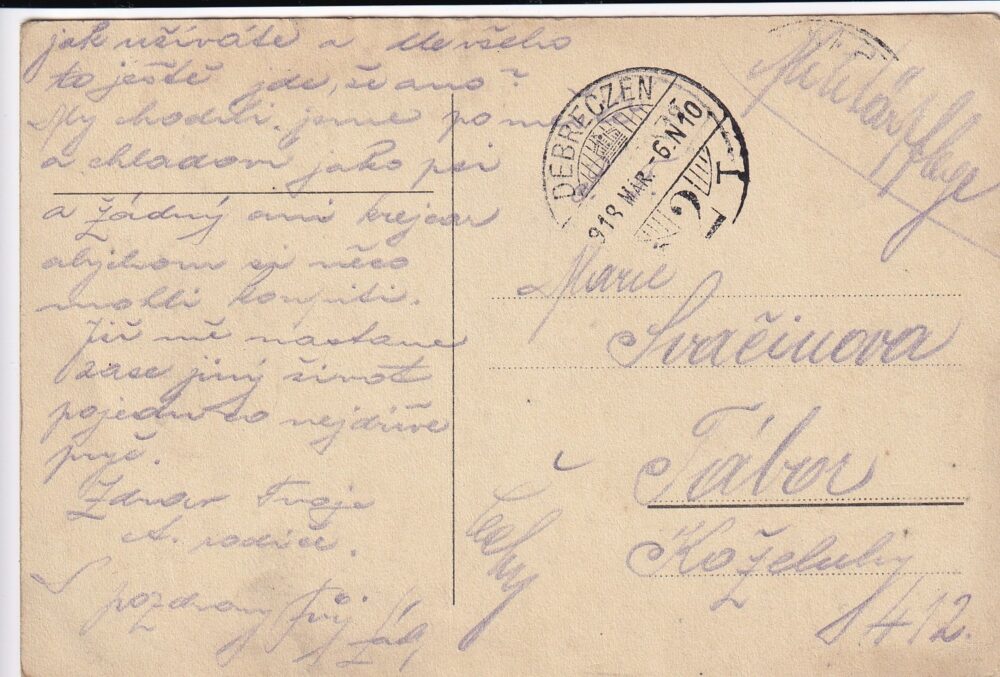 jak užíváte a dle všeho
to ještě jde, že ano?
My chodili jsme po m
a chladom jako psi
a žádný ani krejcar
abychom si něco
mohli koupiti.
Již mě nastane
zase jiný život
pojedu co nejdříve
pryč.
Zdrav Tvoje
A. rodiče.
S pozdravy Tvůj
DEBRECZEN
918 MÁR. -6.N10
Militärpflege
Marie
Svačinova
Tábor
Koželuhy
412.
Čechy